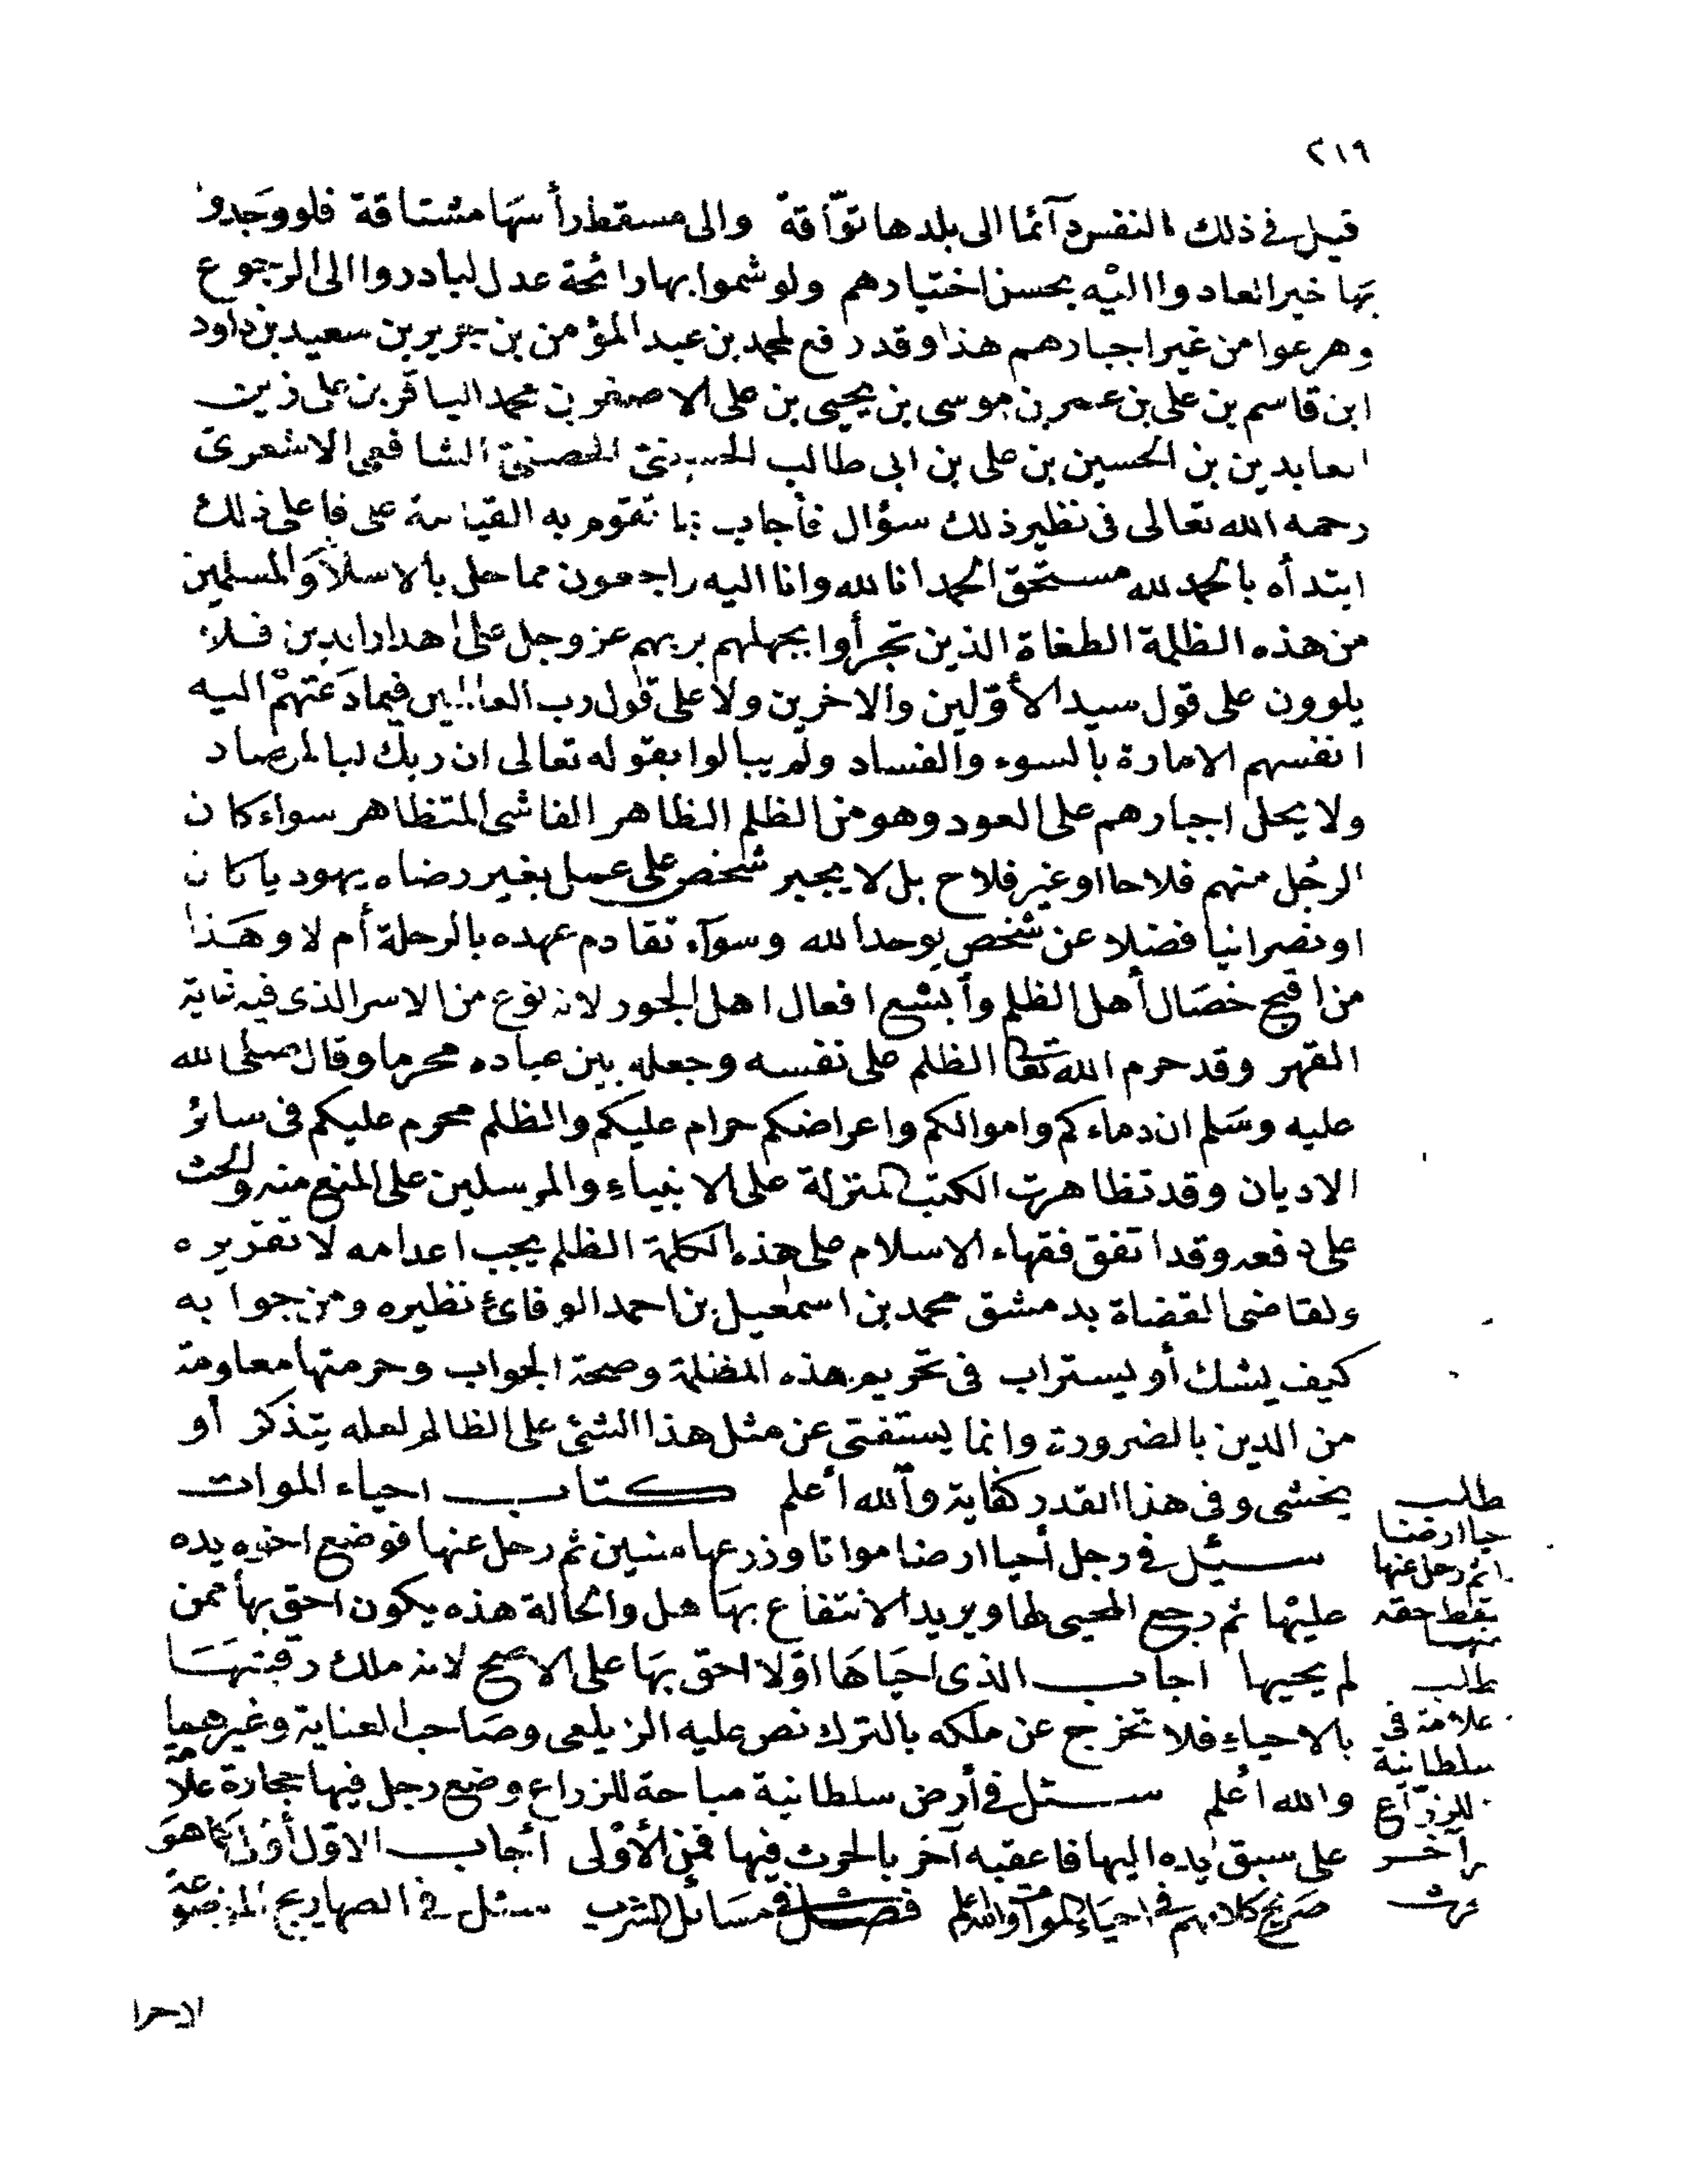 ٢١٩
قيل في ذلك النفس دآئما الى بلدها توّآقة والى مسقط رأسها مشتاقة فلو وجدوا
بها خيرا لعادوا اليه بحسن اختيارهم ولو شموا بها رائحة عدل لبادروا الى الرجوع
وهرعوا من غير اجبارهم هذا وقد رفع لمحمد بن عبد المؤمن بن حريز بن سعيد بن داود
ابن قاسم بن على بن عمر بن موسى بن يحيى بن على الاصغر بن محمد الباقر بن على زين
العابدين بن الحسين بن على بن ابى طالب الحسينى الحصنى الشافعى الاشعرى
رحمه الله تعالى فى نظير ذلك سؤال فأجاب بما تقوم به القيامة على فاعل ذلك
ابتدأه بالحمد لله مستحق الحمد انا لله وانا اليه راجعون مما حل بالاسلام والمسلمين
من هذه الظلمة الطغاة الذين تجرأوا بجهلهم بربهم عز وجل على اهدار الدين فلا
يلوون على قول سيد الأوّلين والاخرين ولا على قول رب العالمين فيما دعتهم اليه
انفسهم الامارة بالسوء والفساد ولم يبالوا بقوله تعالى ان ربك لبالمرصاد
ولا يحل اجبارهم على العود وهو من الظلم الظاهر الفاشى المتظاهر سواء كان
الرجل منهم فلاحا او غير فلاح بل لا يجبر شخص على عمل بغير رضاه يهوديا كان
او نصرانيا فضلا عن شخص يوحد الله وسوآء تقادم عهده بالرحلة أم لا وهذا
من اقبح خصال أهل الظلم وأبشع افعال اهل الجور لانه نوع من الاسر الذى فيه غاية
القهر وقد حرم الله تعالى الظلم على نفسه وجعله بين عباده محرما وقال صلى الله
عليه وسلم ان دماءكم واموالكم واعراضكم حرام عليكم والظلم محرم عليكم فى سائر
الاديان وقد تظاهرت الكتب المنزلة على الانبياء والمرسلين على المنع منه والحث
على دفعه وقد اتفق فقهاء الاسلام على هذه الكلمة الظلم يجب اعدامه لا تقريره
ولقاضى القضاة بدمشق محمد بن اسمعيل بن احمد الوفائى نظيره ومن جوابه
كيف يشك أو يستراب فى تحريم هذه المظلمة وصحة الجواب وحرمتها معلومة
من الدين بالضرورة وانما يستفتى عن مثل هذا الشئ على الظالم لعله يتذكر أو
يخشى وفى هذا القدر كفاية والله أعلم كتاب احياء الموات
سئل في رجل أحيا ارضا مواتا وزرعها سنين ثم رحل عنها فوضع اخوه يده
عليها ثم رجع المحيى لها ويريد الانتفاع بها هل والحالة هذه يكون احق بها ممن
لم يحيها اجاب الذى احياها اوّلا احق بها على الاصح لانه ملك رقبتها
بالاحياء فلا تخرج عن ملكه بالترك نص عليه الزيلعى وصاحب العناية وغيرهما
والله أعلم سئل في أرض سلطانية مباحة للزراع وضع رجل فيها حجارة علامة
على سبق يده اليها فاعقبه آخر بالحرث فيها فمن الأولى أجاب الاوّل أولى كما هو
صريح كلامهم فى احياء الموات والله اعلم فصل فى مسائل الشرب سئل في الصهاريج الموضوعة
طلب
حيا ارضا
ثم رحل عنها
يسقط حقه
منها
طلب
علامة فى
سلطانية
للزرّاع
آخر
حرث
الاحرا